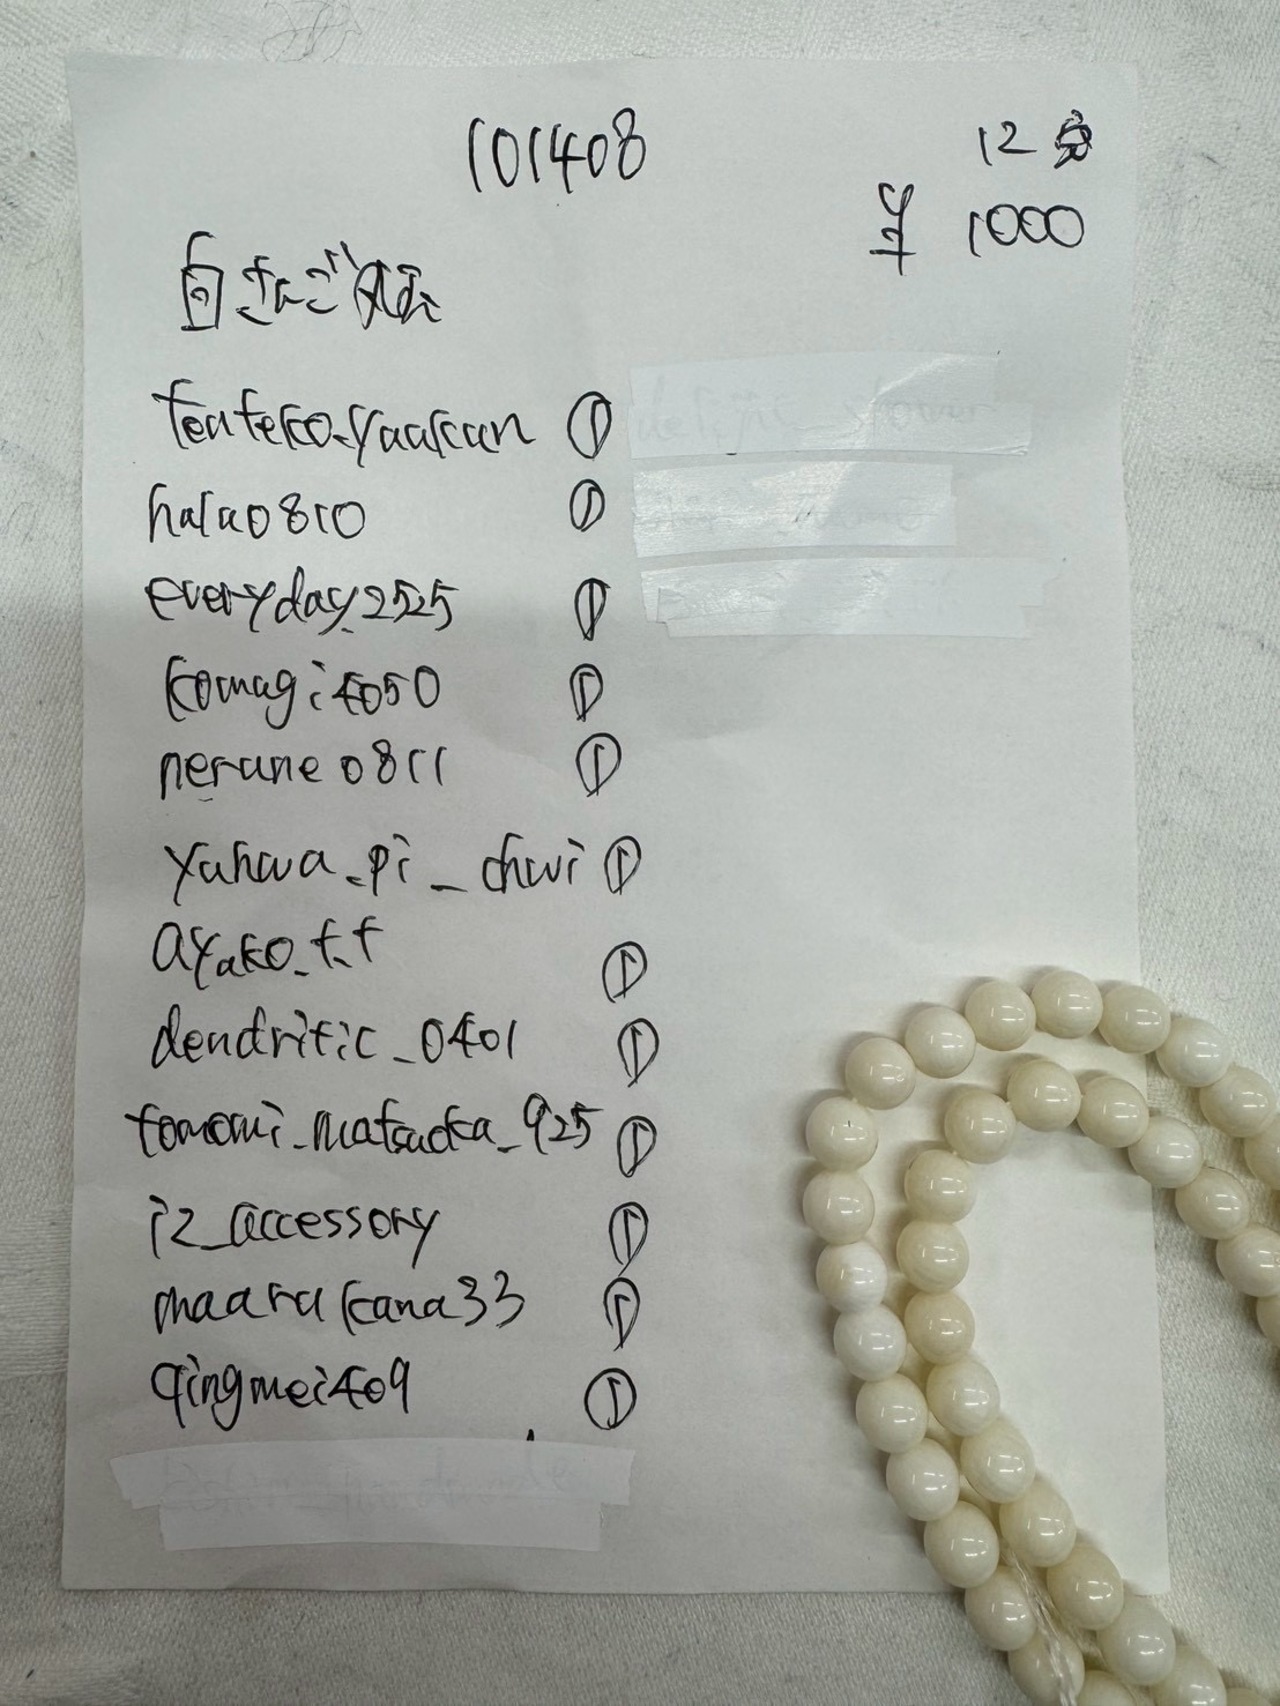 101408
12
¥ 1000
白さんご
tenteko_yaakun ①
hala0810 ①
everyday_2525 ①
komagi4050 ①
nerune0811 ①
yahwa_pi_chwi ①
ayako_t.t ①
dendritic_0401 ①
tomomi_matsuoka_925 ①
iz_accessory ①
maarukana33 ①
qingmei409 ①